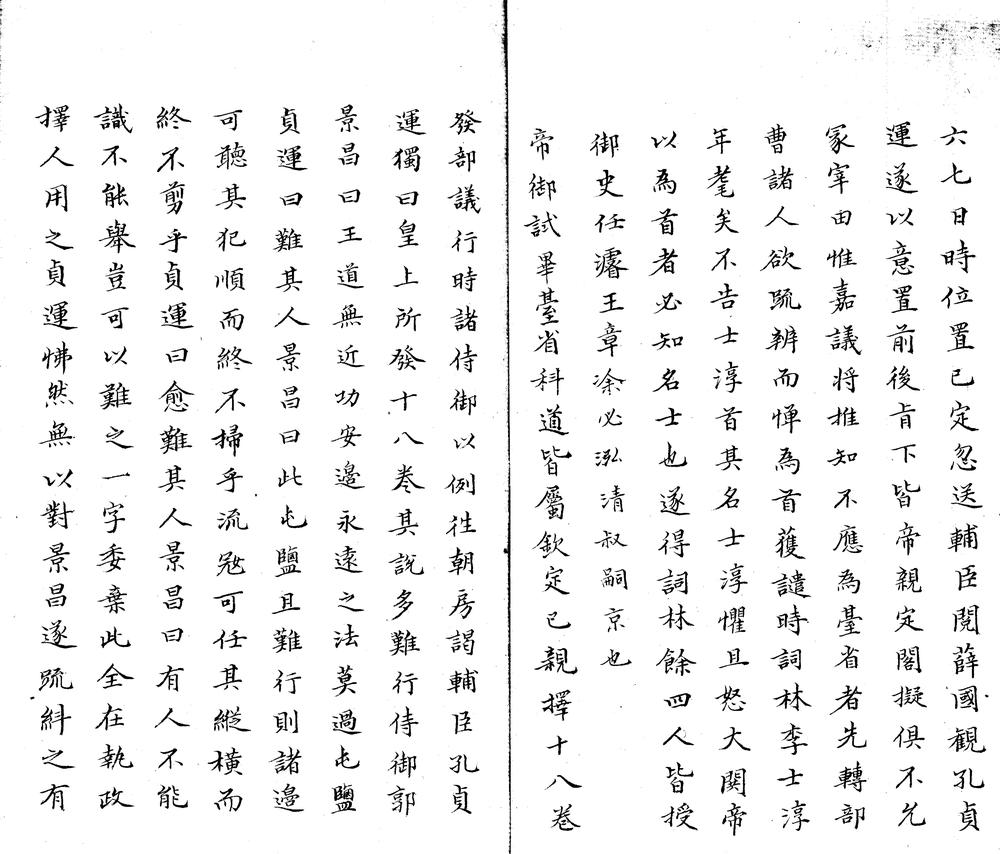 六七日時位置已定忽送輔臣閱薛國觀孔貞
運遂以意置前後肯下皆帝親定閣擬俱不允
冢宰田惟嘉議将推知不應為臺省者先轉部
曹諸人欲䟽辨而惮為首蒦譴時詞林李士淳
年耄矣不告士淳首其名士淳懼且怒大関帝
以為首者必知名士也遂得詞林餘四人皆授
御史任濬王章凃必泓清叔嗣京也
帝御試畢臺省科道皆屬欽定已親擇十八卷
發部議行時諸侍御以例徃朝房謁輔臣孔貞
運獨曰皇上所發十八卷其說多難行侍御郭
景昌曰王道無近功安邊永遠之法莫過屯鹽
貞運曰難其人景昌曰此屯鹽且難行則諸邉
可聼其犯順而終不掃乎流冦可任其縱橫而
終不剪乎貞運曰愈難其人景昌曰有人不能
識不能舉豈可以難之一字委棄此全在執政
擇人用之貞運怫然無以對景昌遂䟽糾之有